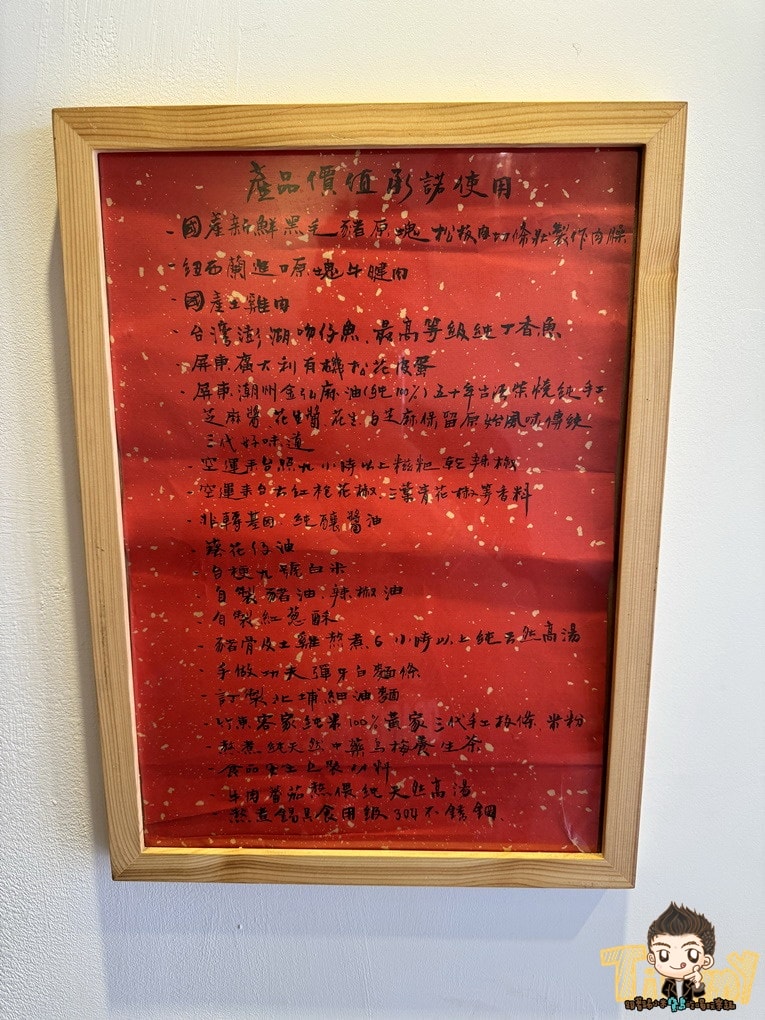 產品價值承諾使用
- 國產新鮮黑毛豬原塊 松板肉切條狀製作肉燥
- 紐西蘭進口原塊牛腱肉
- 國產土雞肉
- 台灣澎湖吻仔魚,最高等級純丁香魚
- 屏東廣大利有機松花皮蛋
- 屏東潮州金弘麻油(純100%)五十年古法柴燒純手工
芝麻醬 花生醬 花生,白芝麻保留原始風味傳統
三代好味道
- 空運來台照九小時以上糍粑乾辣椒
- 空運來台大紅袍花椒,三葉青花椒等香料
- 非轉基因 純釀醬油
- 葵花仔油
- 台梗九號白米
- 自製豬油,辣椒油
- 自製紅蔥酥
- 豬骨及土雞熬煮,6小時以上純天然高湯
- 手做功夫彈牙白麵條
- 訂製北埔細油麵
- 竹東客家純米100%黃家三代手工板條,米粉
- 熬煮純天然中藥烏梅養生茶
- 食品衛生包裝材料
- 牛肉番茄熬煨純天然高湯
- 熬煮鍋具食用級304不銹鋼